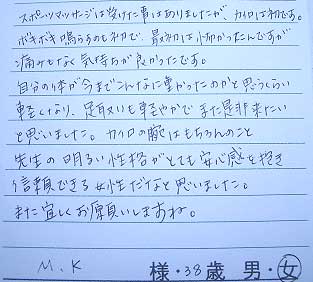 スポーツマッサージは受けた事はありましたが、カイロは初です。
ボキボキ鳴らすのも初で、最初は怖かったんですが
痛みもなく気持ちが良かったです。
自分の体が今までこんなに重かったのかと思うくらい
軽くなり、足取りも軽やかでまた是非来たい
と思いました。カイロの腕はもちろんのこと
先生の明るい性格がとても安心感を抱き
信頼できる女性だなと思いました。
また宜しくお願いしますね。
M.K 様・38歳 男・女